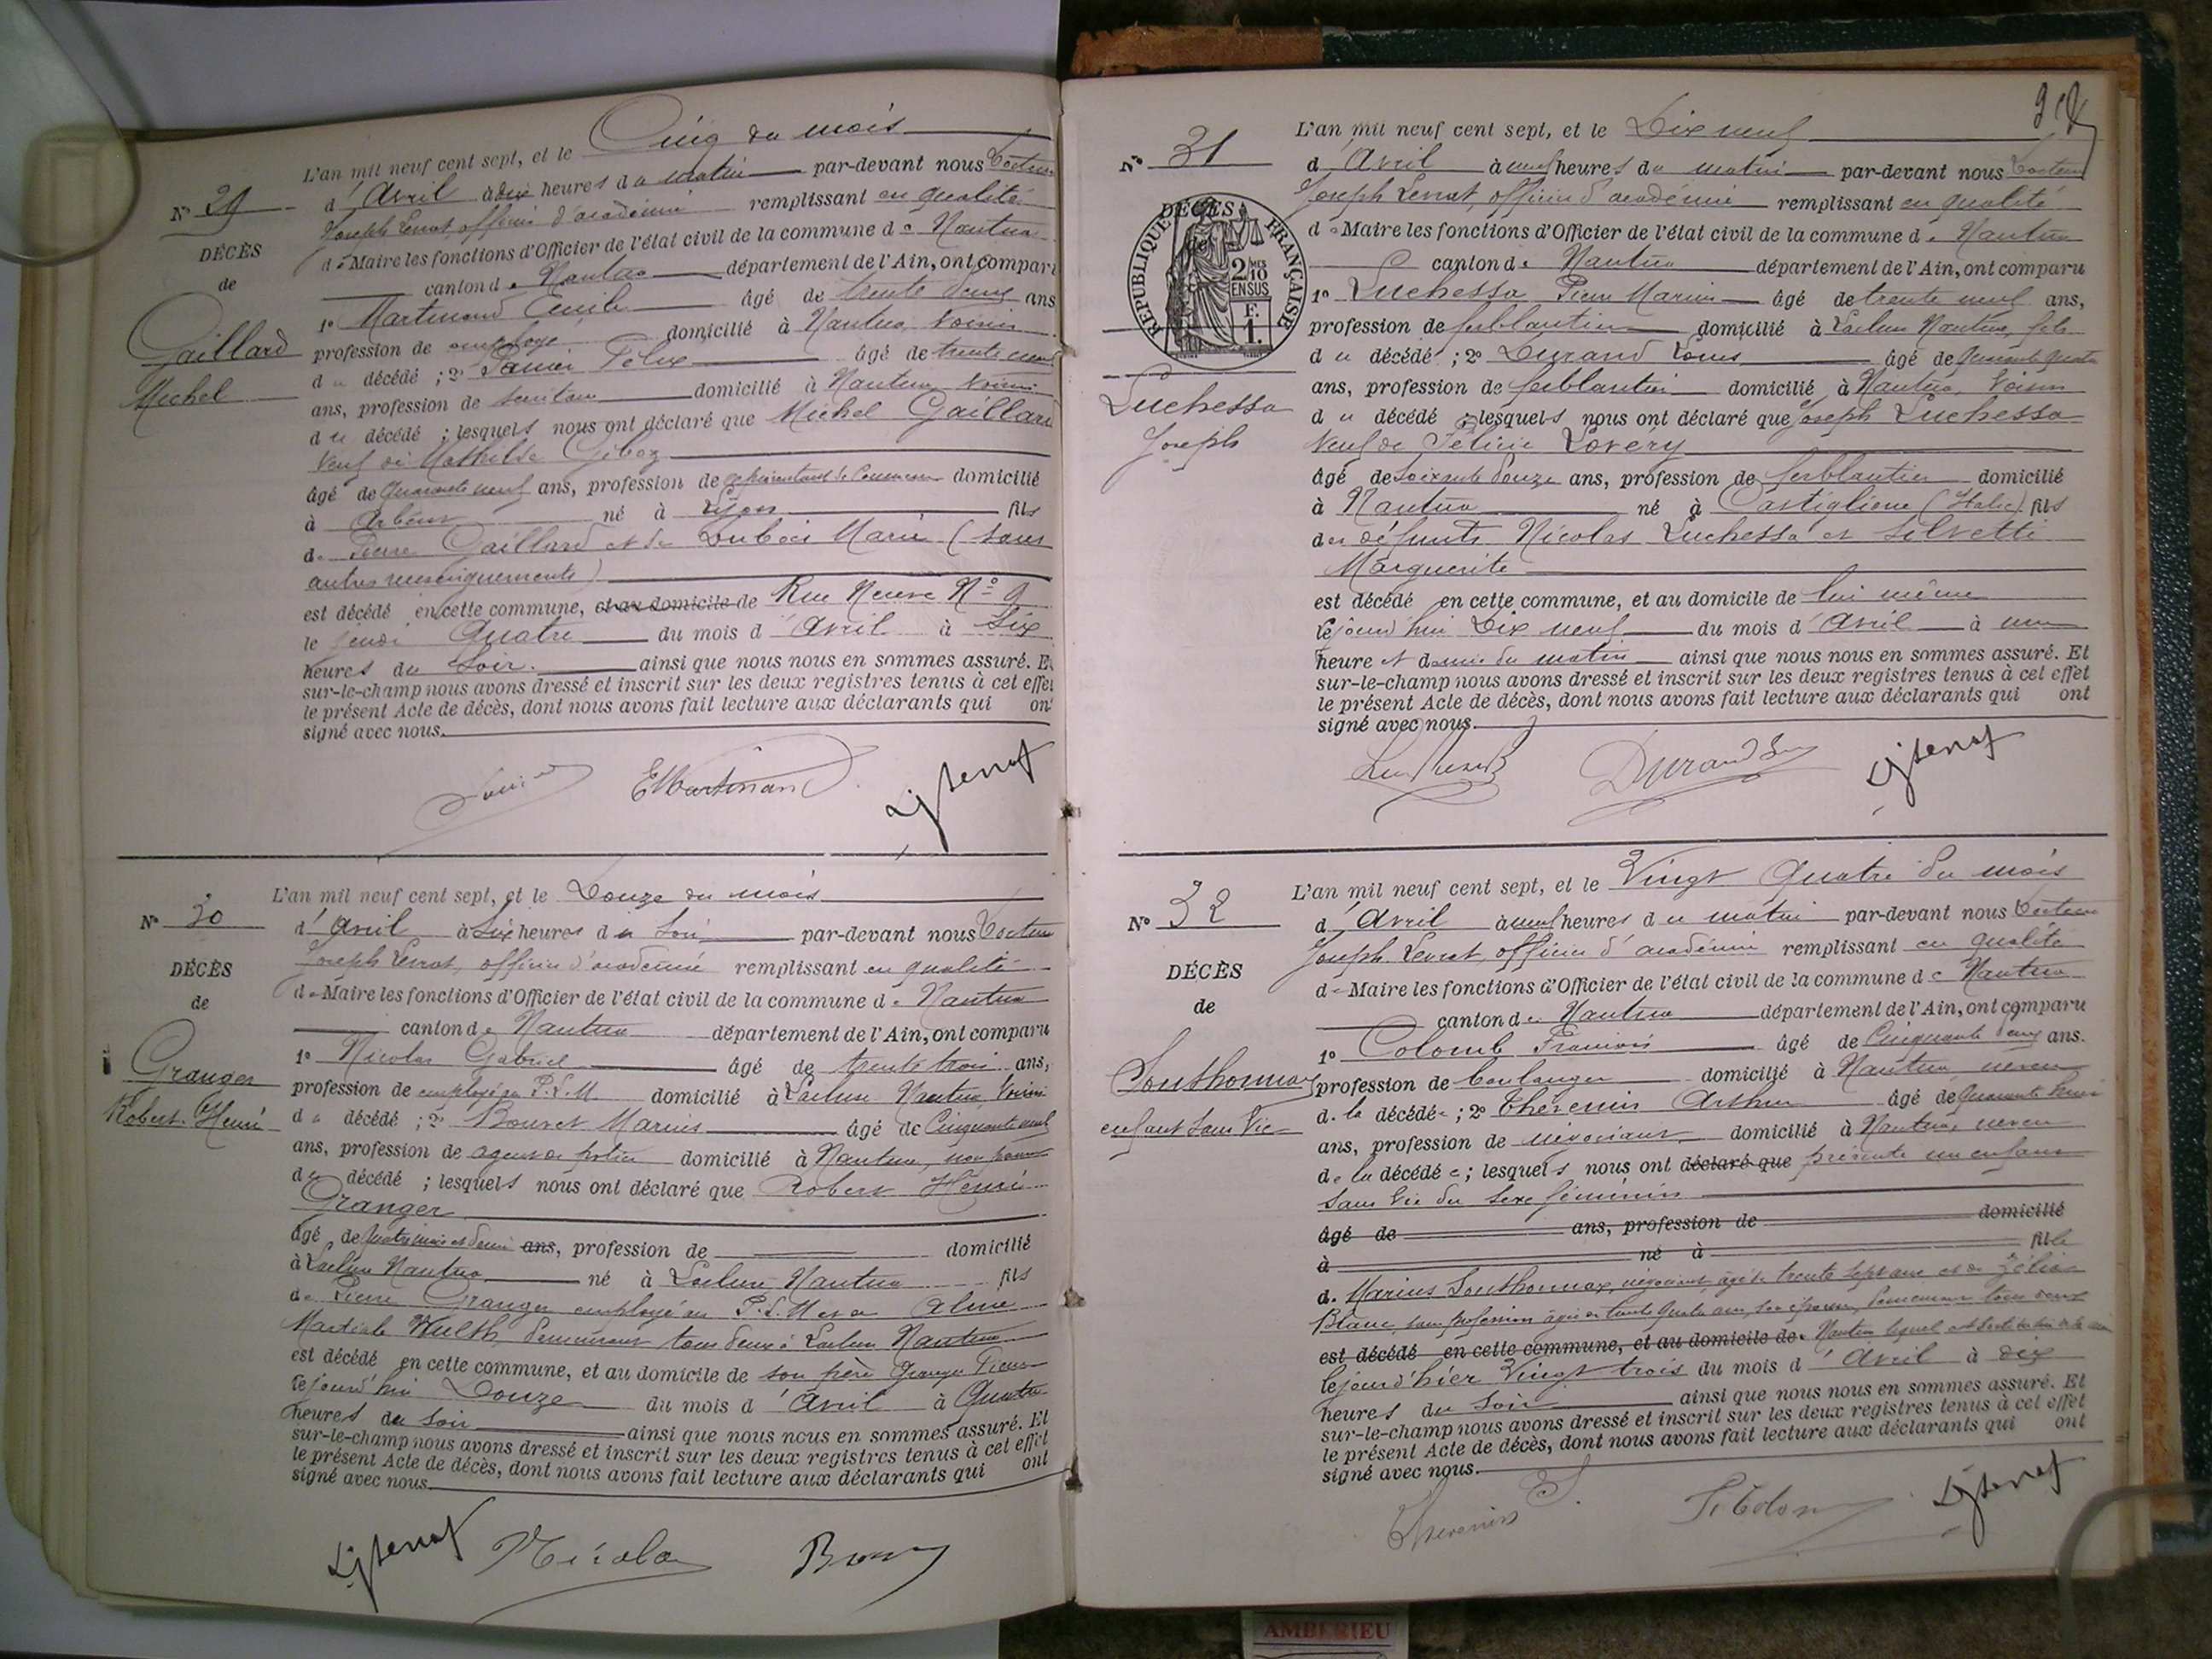 L'an mil neuf cent sept, et le Cinq du mois
d'Avril à dix heures du matin par-devant nous Docteur
Joseph Levrat, officier d'académie remplissant en qualité
de Maire les fonctions d'Officier de l'état civil de la commune de Nantua
canton de Nantua département de l'Ain, ont compar
1º Martinand Emile âgé de trente deux ans
profession de employé domicilié à Nantua, voisin
du décédé ; 2º Félix âgé de trente neuf
ans, profession de domicilié à Nantua, voisin
du décédé ; lesquels nous ont déclaré que Michel Gaillard
veuf de Mathilde
âgé de quarante neuf ans, profession de représentant de Commerce domicilié
à Arbent né à Lyon fils
de Pierre Gaillard et de Dubois Marie (sans
autres renseignements)
est décédé en cette commune, et au domicile de Rue Neuve Nº 9
le jeudi Quatre du mois d'Avril à Six
heures du Soir. ainsi que nous nous en sommes assuré. E
sur-le-champ nous avons dressé et inscrit sur les deux registres tenus à cet effet
le présent Acte de décès, dont nous avons fait lecture aux déclarants qui ont
signé avec nous.
Nº 29
DÉCÈS
de
Gaillard
Michel
EMartinand
L'an mil neuf cent sept, et le Douze du mois
d'Avril à Six heures du Soir par-devant nous Docteur
Joseph Levrat, officier d'académie remplissant en qualité
de Maire les fonctions d'Officier de l'état civil de la commune de Nantua
canton de Nantua département de l'Ain, ont comparu
1º Nicolas Gabriel âgé de trente trois ans,
profession de employé au P.L.M. domicilié à Lacluse Nantua, voisin
du décédé ; 2º Bouvet Marius âgé de Cinquante neuf
ans, profession de agent de police domicilié à Nantua, non parent
du décédé ; lesquels nous ont déclaré que Robert Henri
Granger
âgé de quatre mois et demi ans, profession de domicilié
à Lacluse Nantua né à Lacluse Nantua fils
de Pierre Granger employé au P.L.M et de Aline
Martiale Wulth, demeurant tous deux à Lacluse Nantua
est décédé en cette commune, et au domicile de son père Granger Pierre
le jourd'hui Douze du mois d'Avril à Quatre
heures du Soir ainsi que nous nous en sommes assuré. Et
sur-le-champ nous avons dressé et inscrit sur les deux registres tenus à cet effet
le présent Acte de décès, dont nous avons fait lecture aux déclarants qui ont
signé avec nous.
Nº 30
DÉCÈS
de
Granger
Robert Henri
Nicolas
L'an mil neuf cent sept, et le Dix neuf
d'Avril à neuf heures du matin par-devant nous Docteur
Joseph Levrat, officier d'académie remplissant en qualité
de Maire les fonctions d'Officier de l'état civil de la commune de Nantua
canton de Nantua département de l'Ain, ont comparu
1º Luchessa Pierre Marius âgé de trente neuf ans,
profession de ferblantier domicilié à Lacluse Nantua, fils
du décédé ; 2º Durand Louis âgé de Quarante quatre
ans, profession de ferblantier domicilié à Nantua, voisin
du décédé ; lesquels nous ont déclaré que Joseph Luchessa
veuf de Félicie Lovéry
âgé de Soixante douze ans, profession de ferblantier domicilié
à Nantua né à Castiglione (Italie) fils
des défunts Nicolas Luchessa et Silvetti
Marguerite
est décédé en cette commune, et au domicile de lui même
le jourd'hui Dix neuf du mois d'Avril à une
heure et demie du matin ainsi que nous nous en sommes assuré. Et
sur-le-champ nous avons dressé et inscrit sur les deux registres tenus à cet effet
le présent Acte de décès, dont nous avons fait lecture aux déclarants qui ont
signé avec nous.
Nº 31
DÉCÈS
de
RÉPUBLIQUE FRANÇAISE
2/10 MES
EN SUS
F.
1.
Luchessa
Joseph
Durand
L'an mil neuf cent sept, et le Vingt Quatre du mois
d'Avril à neuf heures du matin par-devant nous Docteur
Joseph Levrat, officier d'académie remplissant en qualité
de Maire les fonctions d'Officier de l'état civil de la commune de Nantua
canton de Nantua département de l'Ain, ont comparu
1º Colomb François âgé de Cinquante deux ans.
profession de boulanger domicilié à Nantua, neveu
de la décédée ; 2º Thévenin Arthur âgé de Quarante
ans, profession de négociant domicilié à Nantua, neveu
de la décédée ; lesquels nous ont déclaré que présenté un enfant
sans vie du sexe féminin
âgé de ans, profession de domicilié
à né à fille
de Marius Southonnax, négociant, âgé de trente sept ans et de Zélia
Blanc, sans profession âgée de trente quatre ans, son épouse, demeurant tous deux
est décédé en cette commune, et au domicile de Nantua, lequel est sorti du sein de sa
le jour d'hier Vingt trois du mois d'Avril à dix
heures du Soir ainsi que nous nous en sommes assuré. Et
sur-le-champ nous avons dressé et inscrit sur les deux registres tenus à cet effet
le présent Acte de décès, dont nous avons fait lecture aux déclarants qui ont
signé avec nous.
Nº 32
DÉCÈS
de
Southonnax
enfant sans Vie
Thevenin
AMBERIEU